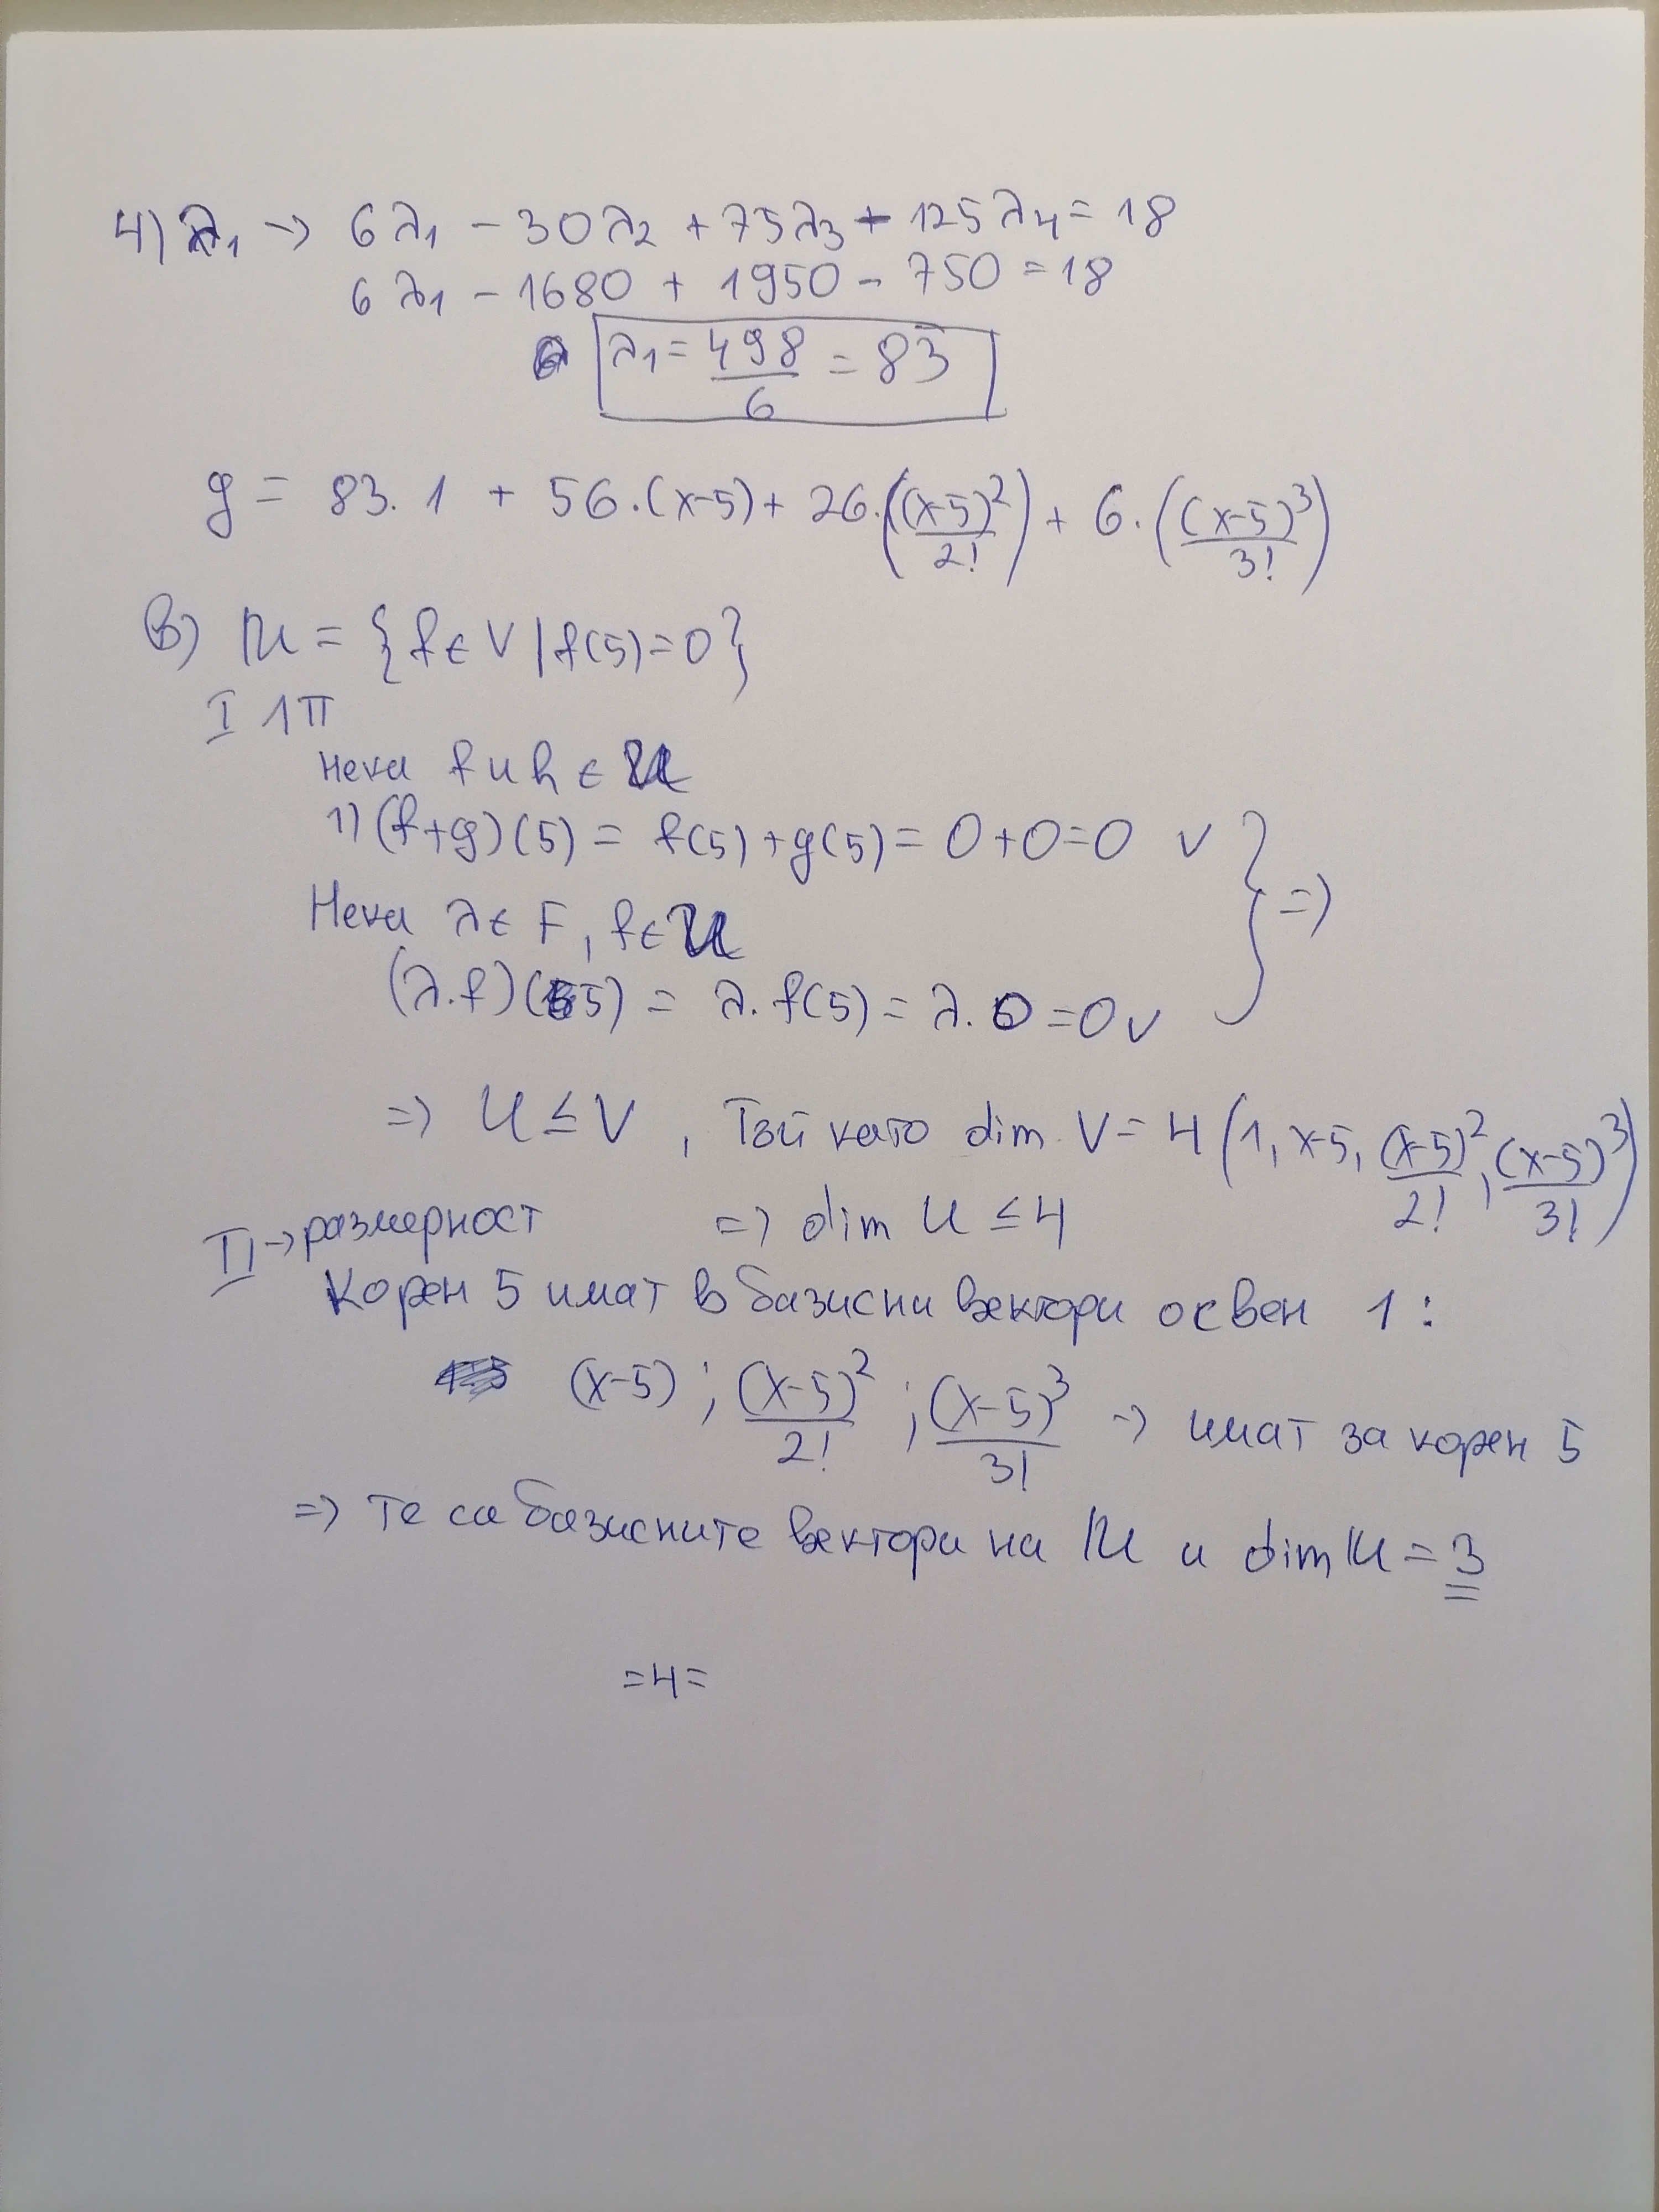 4) λ₁ → 6λ₁ - 30λ₂ + 75λ₃ - 125λ₄ = 18
6λ₁ - 1680 + 1950 - 750 = 18
λ₁ = 498/6 = 83
g = 83.1 + 56.(x-5) + 26.((x-5)²/2!) + 6.((x-5)³/3!)
в) U = {f ∈ V | f(5) = 0}
I 1П
Нека f и h ∈ U
1) (f+g)(5) = f(5) + g(5) = 0+0=0 v } =>
Нека λ ∈ F, f ∈ U
(λ.f)(5) = λ.f(5) = λ.0 = 0 v
=> U ≤ V, Тъй като dim V = 4 (1, x-5, (x-5)²/2!, (x-5)³/3!)
II → размерност => dim U ≤ 4
Корен 5 имат в базисни вектори освен 1:
(x-5); (x-5)²/2!; (x-5)³/3! → имат за корен 5
=> те са базисните вектори на U и dim U = 3
=4=